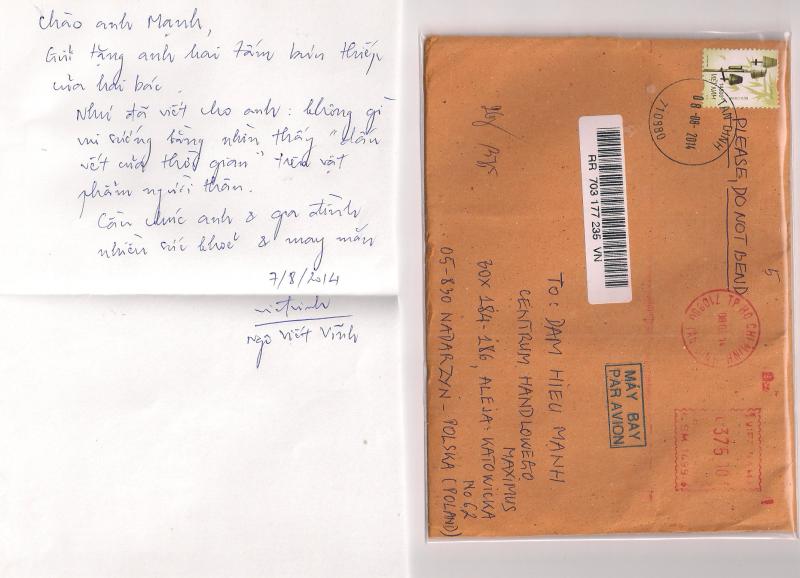 Chào anh Mạnh,
Gửi tặng anh hai tấm bưu thiếp
của hai bác.
Như đã viết cho anh: không gì
vui sướng bằng nhìn thấy "dấu
vết của thời gian" trên vật
phẩm người thân.
Cầu chúc anh & gia đình
nhiều sức khoẻ & may mắn
7/8/2014
Ngô Viết Vĩnh
VIỆT NAM
TAN DINH
08-08-2014
710980
PLEASE, DO NOT BEND
5
RR 703 177 235 VN
TP HO CHI MINH
MÁY BAY
PAR AVION
To: DAM HIEU MANH
CENTRUM HANDLOWEGO
MAXIMUS
BOX 184-186, ALEJA: KATOWICKA
No 62
05-830 NADARZYN - POLSKA (POLAND)